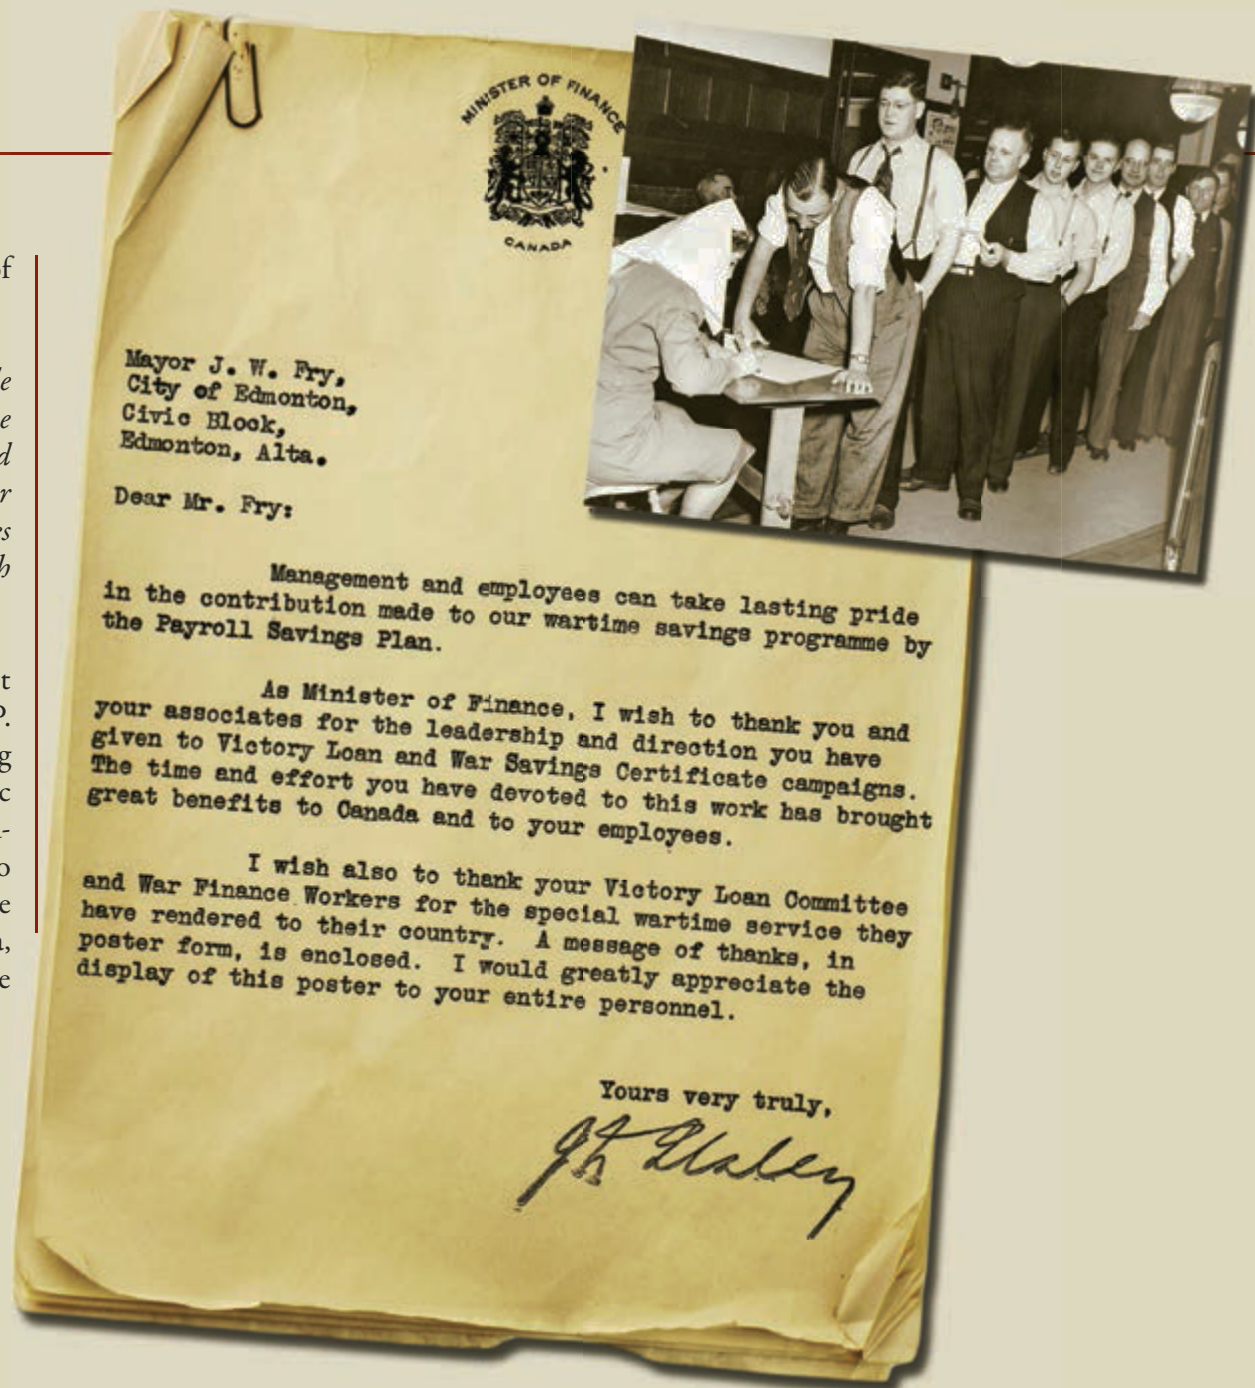 MINISTER OF FINANCE
CANADA
Mayor J. W. Fry,
City of Edmonton,
Civic Block,
Edmonton, Alta.
Dear Mr. Fry:
Management and employees can take lasting pride
in the contribution made to our wartime savings programme by
the Payroll Savings Plan.
As Minister of Finance, I wish to thank you and
your associates for the leadership and direction you have
given to Victory Loan and War Savings Certificate campaigns.
The time and effort you have devoted to this work has brought
great benefits to Canada and to your employees.
I wish also to thank your Victory Loan Committee
and War Finance Workers for the special wartime service they
have rendered to their country. A message of thanks, in
poster form, is enclosed. I would greatly appreciate the
display of this poster to your entire personnel.
Yours very truly,